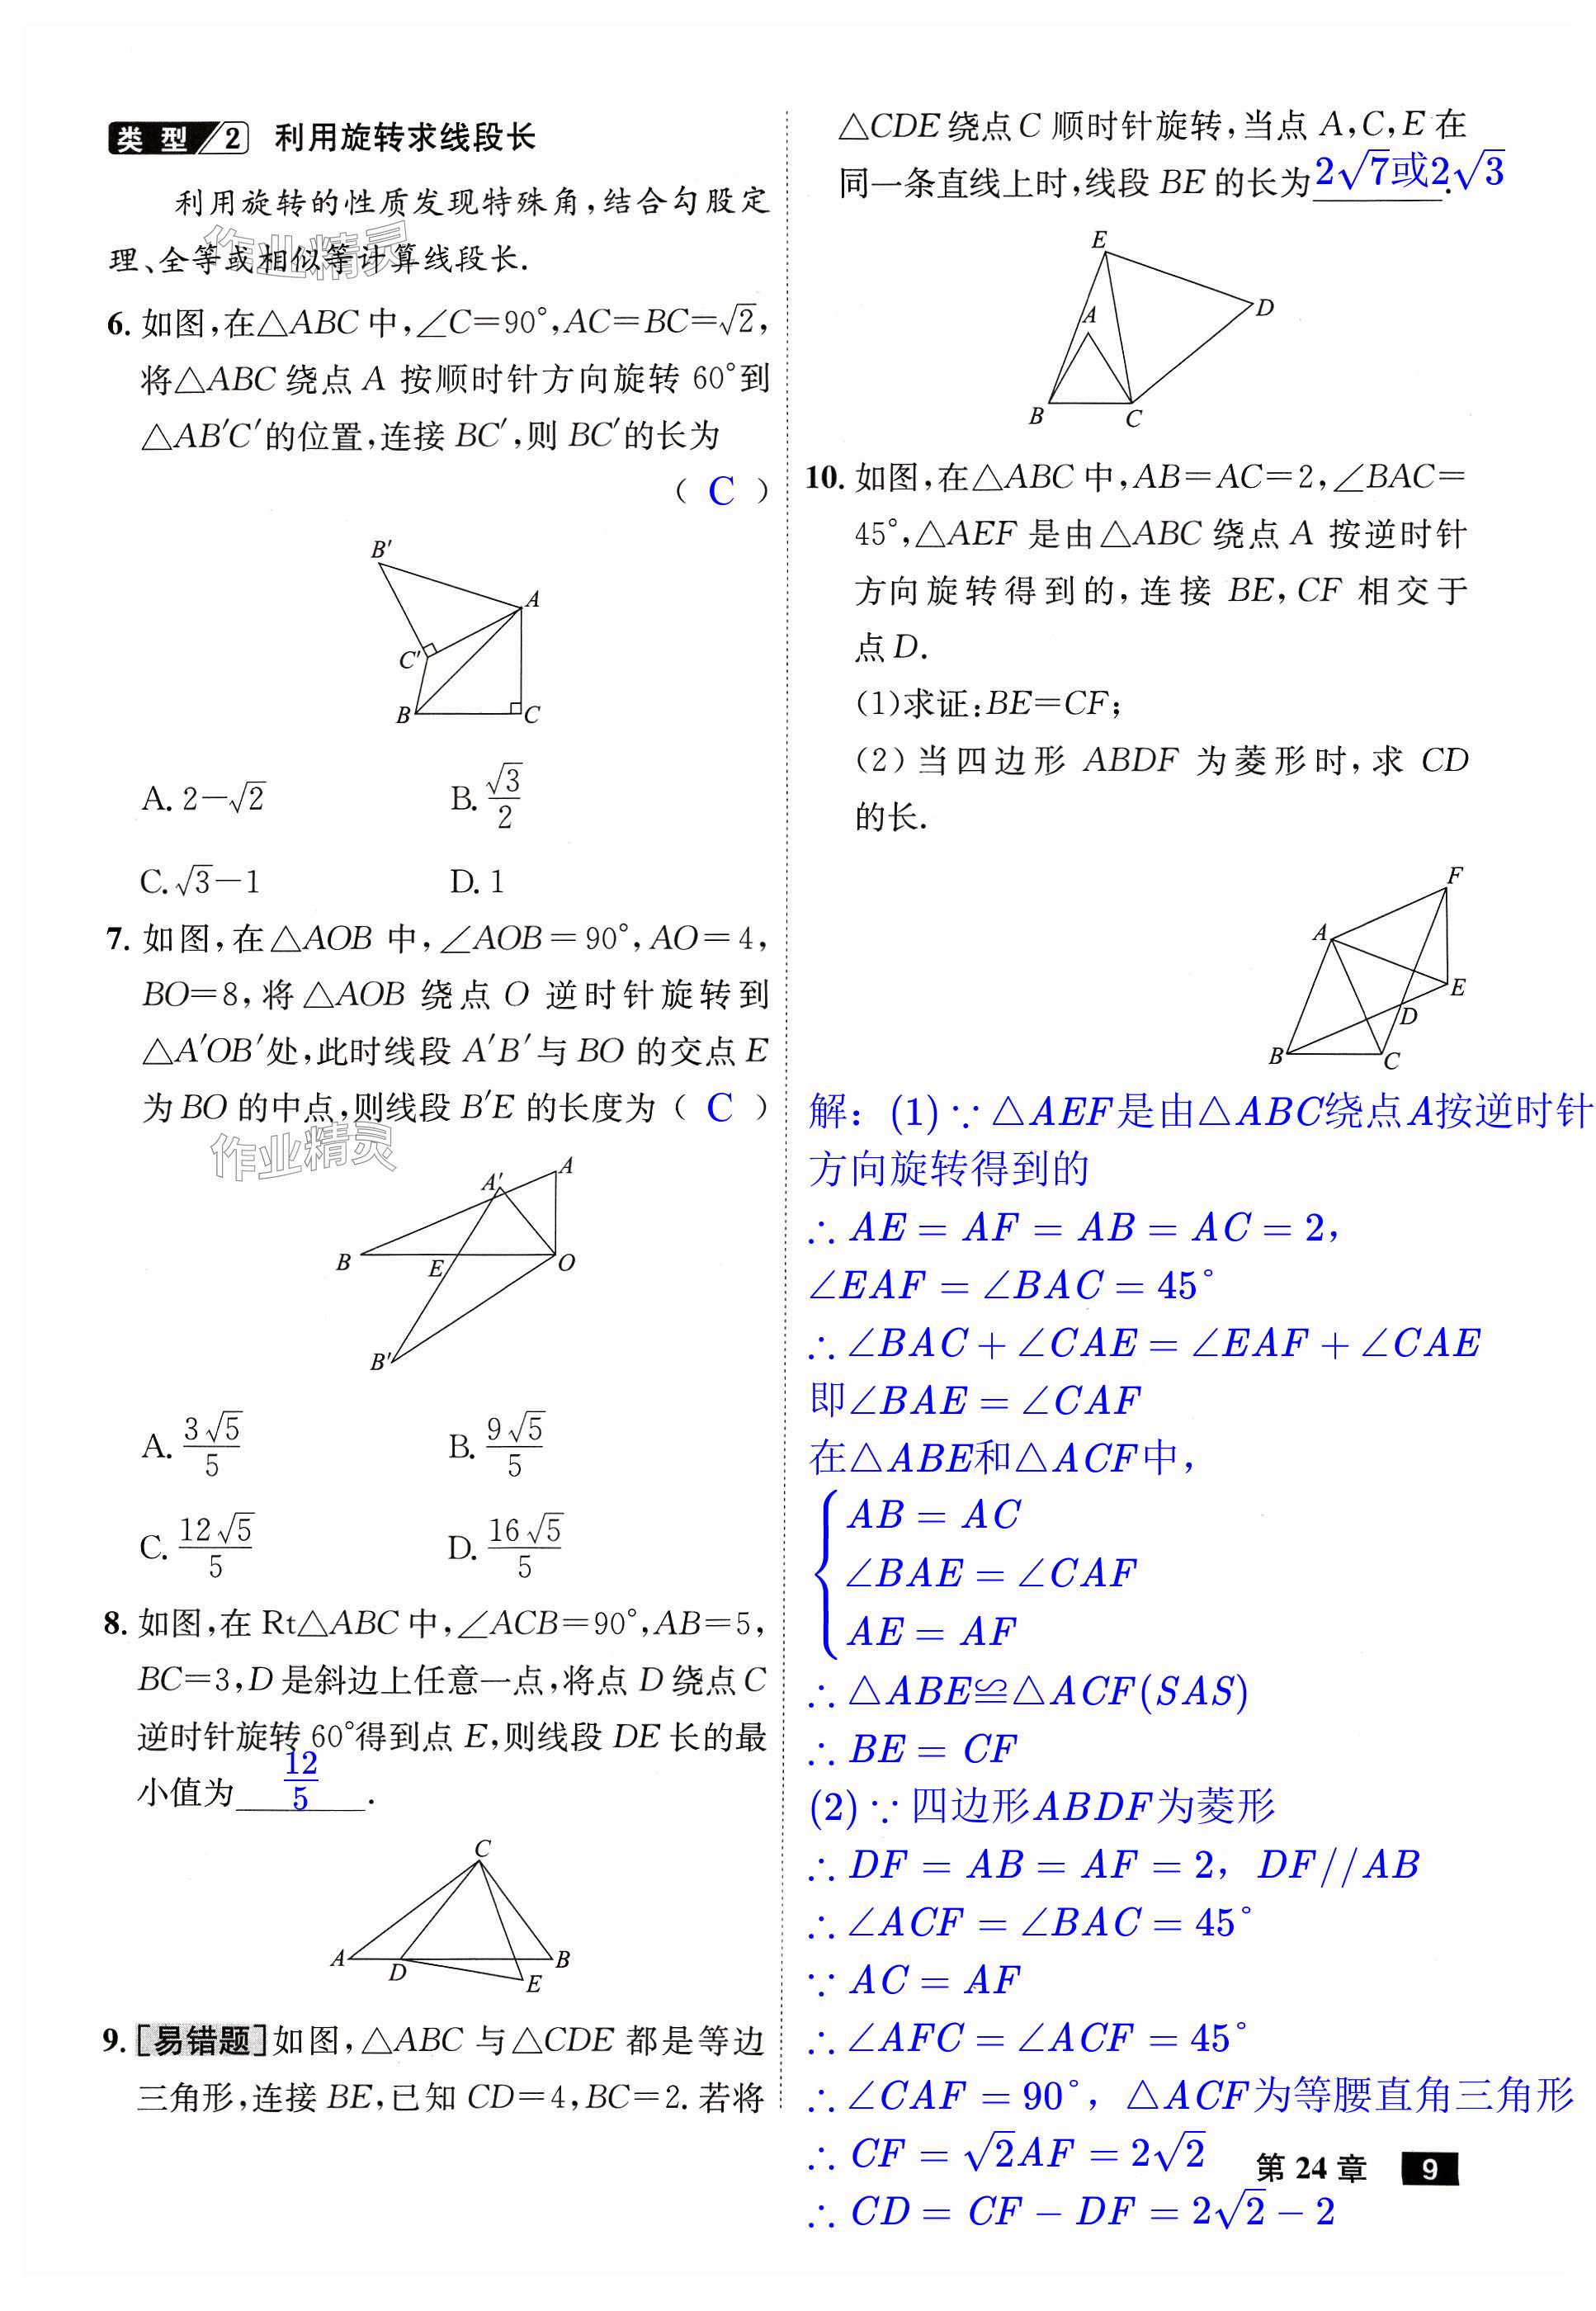 类型 2 利用旋转求线段长
利用旋转的性质发现特殊角,结合勾股定
理、全等或相似等计算线段长.
作业精灵
6. 如图,在△ABC中,∠C=90°,AC=BC=√2,
将△ABC绕点A按顺时针方向旋转60°到
△AB′C′的位置,连接BC′,则BC′的长为
( C )
B′
A
C′
B
C
A. 2−√2 B. √3/2
C. √3−1 D. 1
7. 如图,在△AOB中,∠AOB=90°,AO=4,
BO=8,将△AOB绕点O逆时针旋转到
△A′OB′处,此时线段A′B′与BO的交点E
为BO的中点,则线段B′E的长度为( C )
作业精灵
A
A′
B
E
O
B′
A. 3√5/5 B. 9√5/5
C. 12√5/5 D. 16√5/5
8. 如图,在Rt△ABC中,∠ACB=90°,AB=5,
BC=3,D是斜边上任意一点,将点D绕点C
逆时针旋转60°得到点E,则线段DE长的最
小值为 12/5 .
C
A
D
B
E
9. [易错题]如图,△ABC与△CDE都是等边
三角形,连接BE,已知CD=4,BC=2.若将
△CDE绕点C顺时针旋转,当点A,C,E在
同一条直线上时,线段BE的长为2√7或2√3.
E
A
D
B
C
10. 如图,在△ABC中,AB=AC=2,∠BAC=
45°,△AEF是由△ABC绕点A按逆时针
方向旋转得到的,连接BE,CF相交于
点D.
(1)求证:BE=CF;
(2)当四边形ABDF为菱形时,求CD
的长.
F
A
E
D
B
C
解：(1)∵△AEF是由△ABC绕点A按逆时针
方向旋转得到的
∴AE=AF=AB=AC=2,
∠EAF=∠BAC=45°
∴∠BAC+∠CAE=∠EAF+∠CAE
即∠BAE=∠CAF
在△ABE和△ACF中,
{AB=AC
∠BAE=∠CAF
AE=AF
∴△ABE≌△ACF(SAS)
∴BE=CF
(2)∵四边形ABDF为菱形
∴DF=AB=AF=2, DF//AB
∴∠ACF=∠BAC=45°
∵AC=AF
∴∠AFC=∠ACF=45°
∴∠CAF=90°, △ACF为等腰直角三角形
∴CF=√2AF=2√2
∴CD=CF−DF=2√2−2
第24章 9